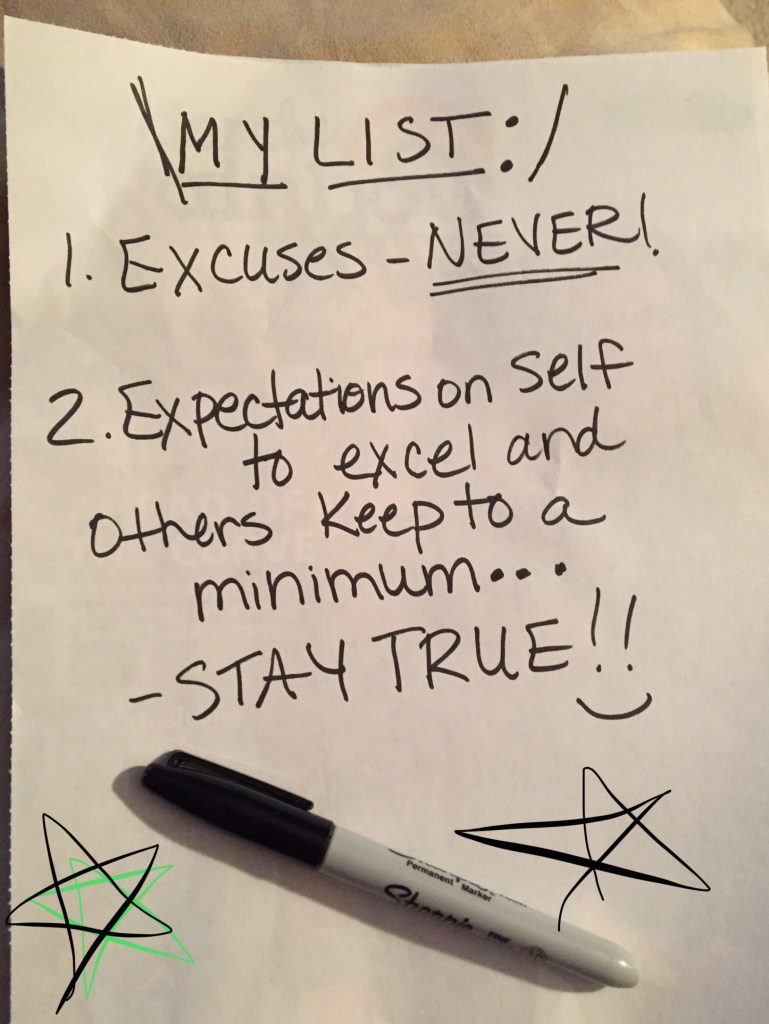 \MY LIST:/
1. Excuses - NEVER!
2. Expectations on self
to excel and
others keep to a
minimum...
- STAY TRUE!!
Permanent Marker
Sharpie
FINE